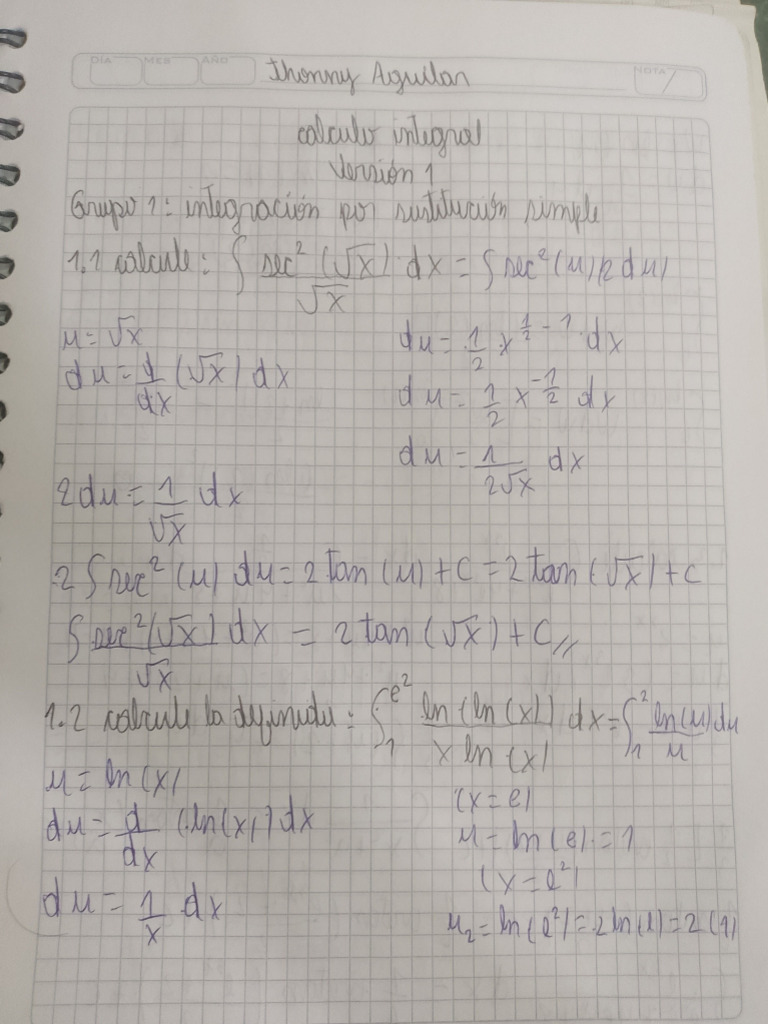 DIA MES AÑO Jhonny Aguilar NOTA
calculo integral
Versión 1
Grupo 1: integración por sustitución simple
1.1 calcule: ∫ sec² (√x) / √x dx = ∫ sec² (u) (2 du)
u = √x
du = d/dx (√x) dx
du = 1/2 x^(1/2 - 1) dx
du = 1/2 x^(-1/2) dx
du = 1/(2√x) dx
2du = 1/√x dx
2 ∫ sec² (u) du = 2 tan (u) + C = 2 tan (√x) + C
∫ sec² (√x) / √x dx = 2 tan (√x) + C //
1.2 calcule la definida: ∫₁^(e²) ln (ln (x)) / (x ln (x)) dx = ∫₁² ln(u) / u du
u = ln (x)
du = d/dx (ln(x)) dx
du = 1/x dx
(x = e)
u = ln (e) = 1
(x = e²)
u₂ = ln (e²) = 2 ln (e) = 2 (1)